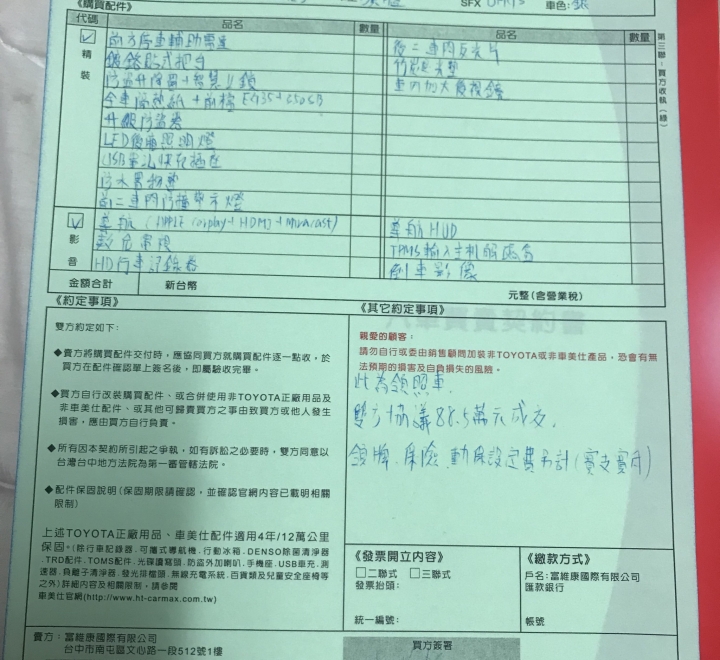 《購買配件》
SFX
車色：銀
代碼 品名 數量 品名 數量
精裝
前方停車輔助雷達
後二車門反光片
鍍鉻貼式把手
防盜升降窗+智慧II鎖
車內加大後視鏡
全車隔熱紙+前檔
升級防盜器
LED後廂照明燈
防水置物墊
前二車門防撞警示燈
影音
導航 (Apple carplay+HDMI+Miracast)
導航HUD
數位電視
HD行車記錄器
倒車影像
金額合計 新台幣 元整(含營業稅)
第三聯：買方收執(綠)
《約定事項》
雙方約定如下：
◆賣方將購買配件交付時，應協同買方就購買配件逐一點收，於
買方在配件確認單上簽名後，即屬驗收完畢。
◆買方自行改裝購買配件、或合併使用非TOYOTA正廠用品及
非車美仕配件、或其他可歸責買方之事由致買方或他人發生
損害，應由買方自行負責。
◆所有因本契約所引起之爭執，如有訴訟之必要時，雙方同意以
台灣台中地方法院為第一審管轄法院。
◆配件保固說明(保固期限請確認，並確認官網內容已載明相關
限制)
上述TOYOTA正廠用品、車美仕配件適用4年/12萬公里
保固。(除行車記錄器.可攜式導航機.行動冰箱.DENSO除菌清淨器
.TRD配件.TOMS配件.光碟讀寫頭.防盜外加喇叭.手機座.USB車充.測
速器.負離子清淨器.發光排檔頭.無線充電系統.百貨類及兒童安全座椅等
之外)詳細內容及相關限制，請參閱
車美仕官網(http://www.ht-carmax.com.tw)
《其它約定事項》
汽車買賣契約書
親愛的顧客：
請勿自行或委由銷售顧問加裝非TOYOTA或非車美仕產品，恐會有無
法預期的損害及自負損失的風險。
此為領照車.
雙方協議88.5萬元成交.
領牌.保險.動保設定費另計(實支實付)
《發票開立內容》
□二聯式 □三聯式
發票抬頭：
統一編號：
《繳款方式》
戶名：富維康國際有限公司
匯款銀行
帳號
賣方：富維康國際有限公司
台中市南屯區文心路一段512號1樓
買方簽署